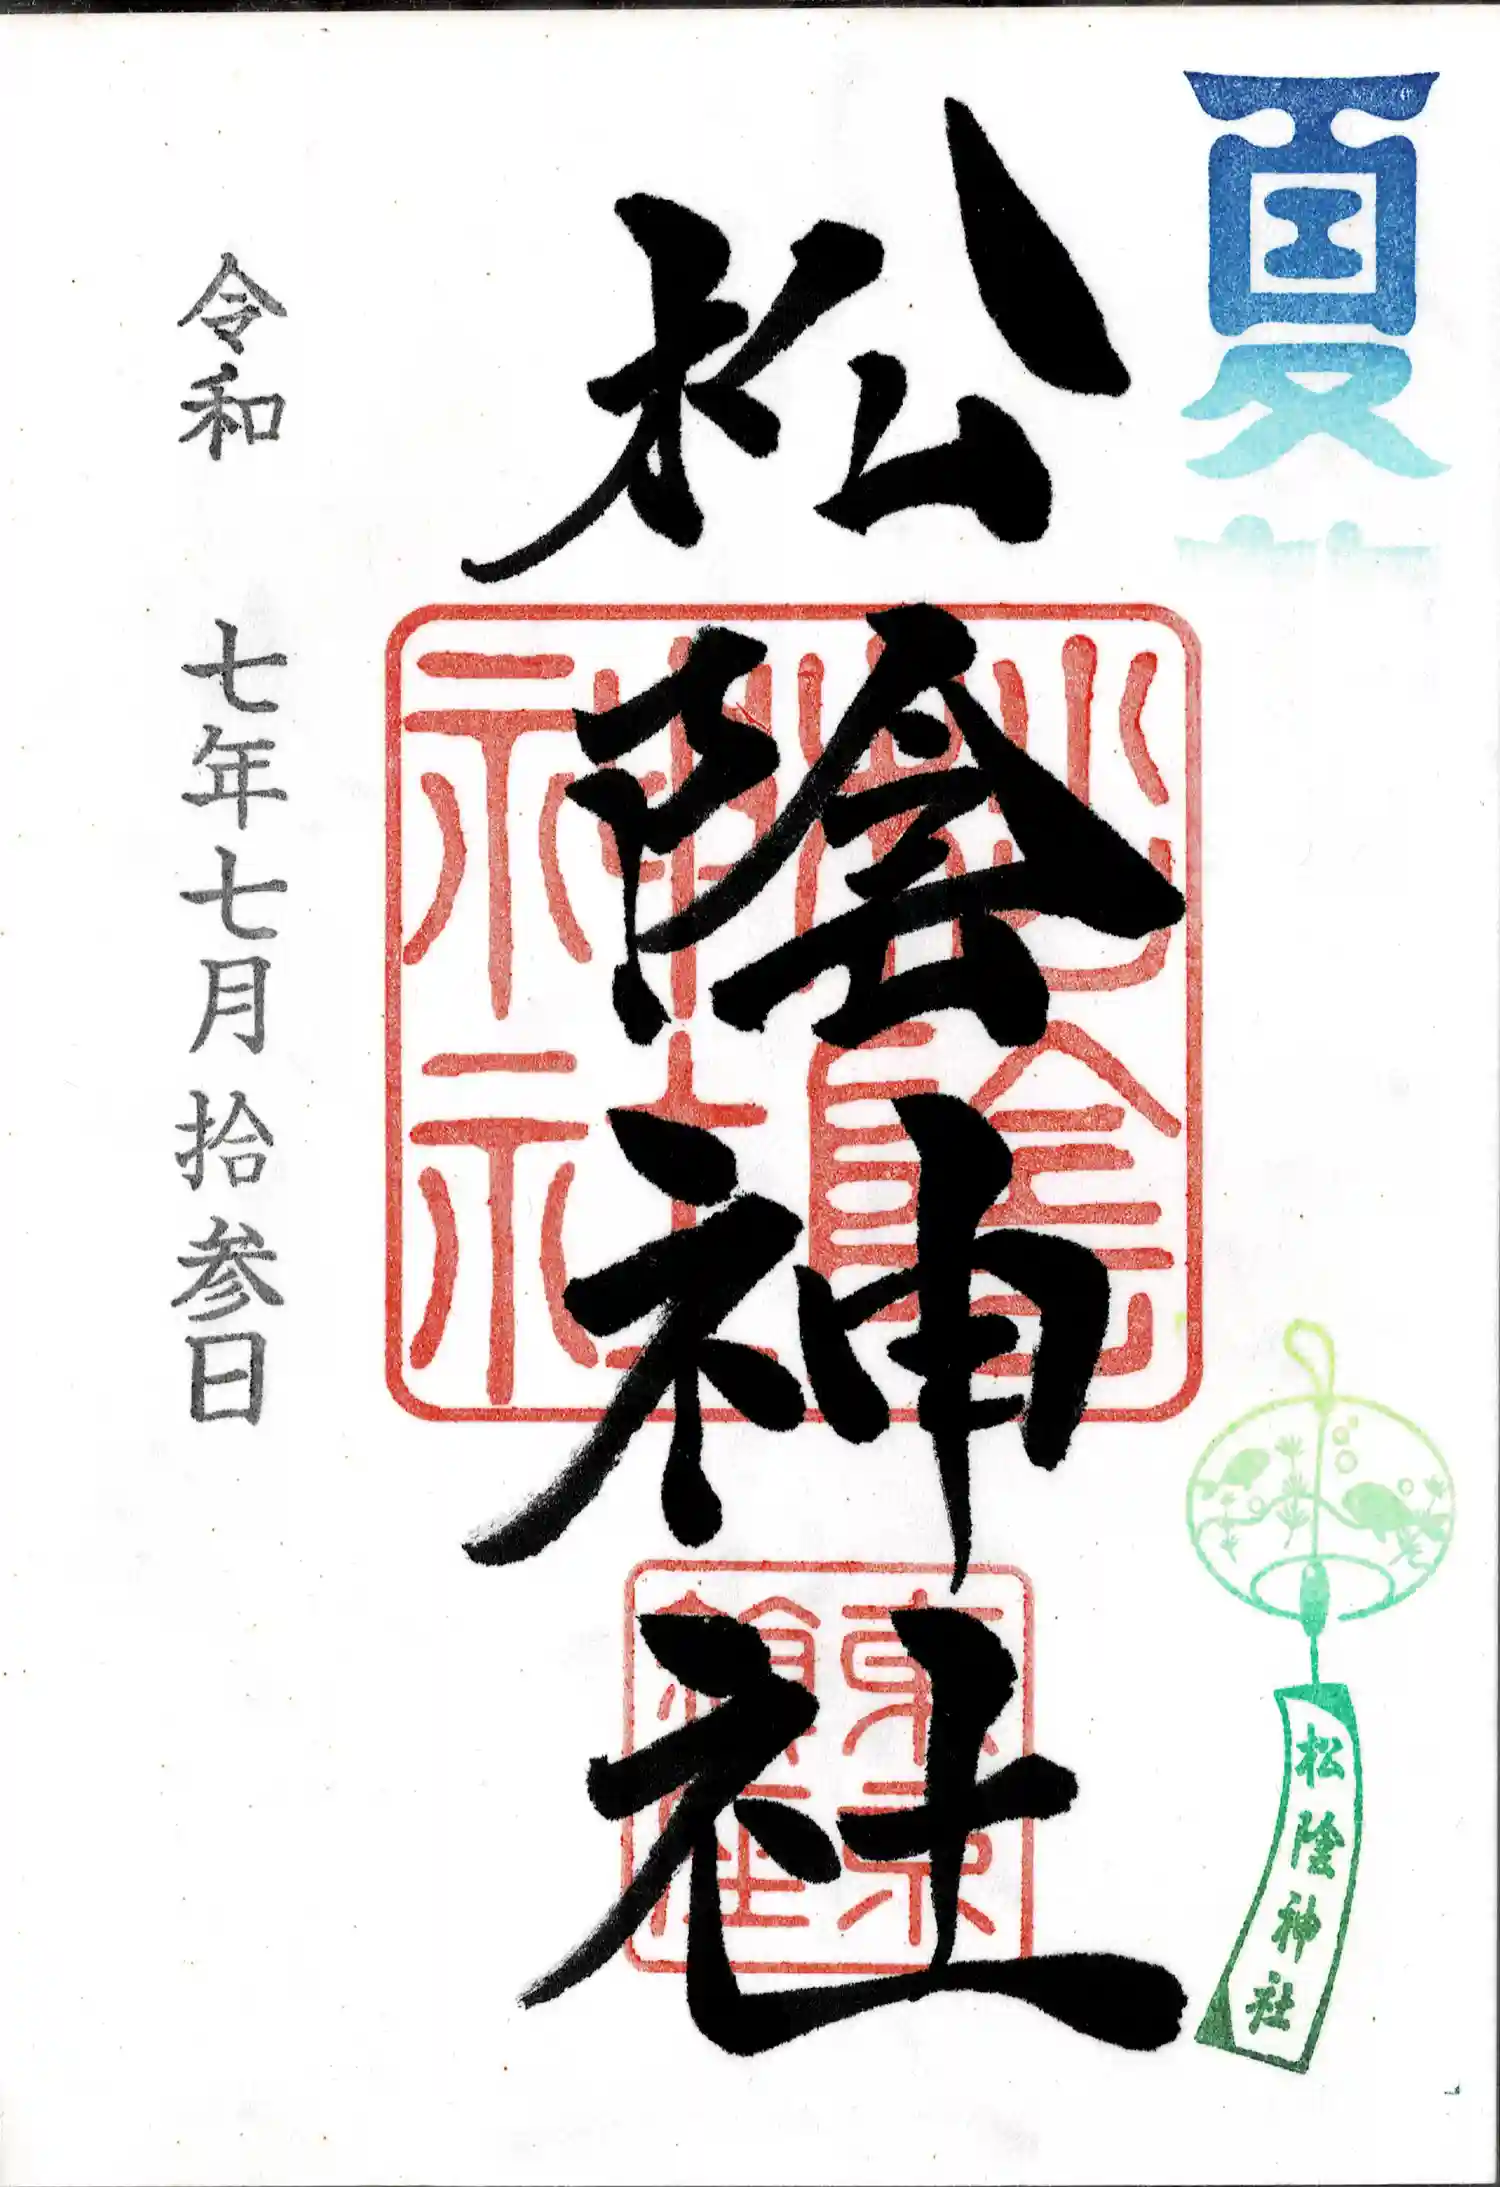 夏
松陰神社
松陰
神社
東京
鎮座
松陰神社
令和 七年七月拾参日